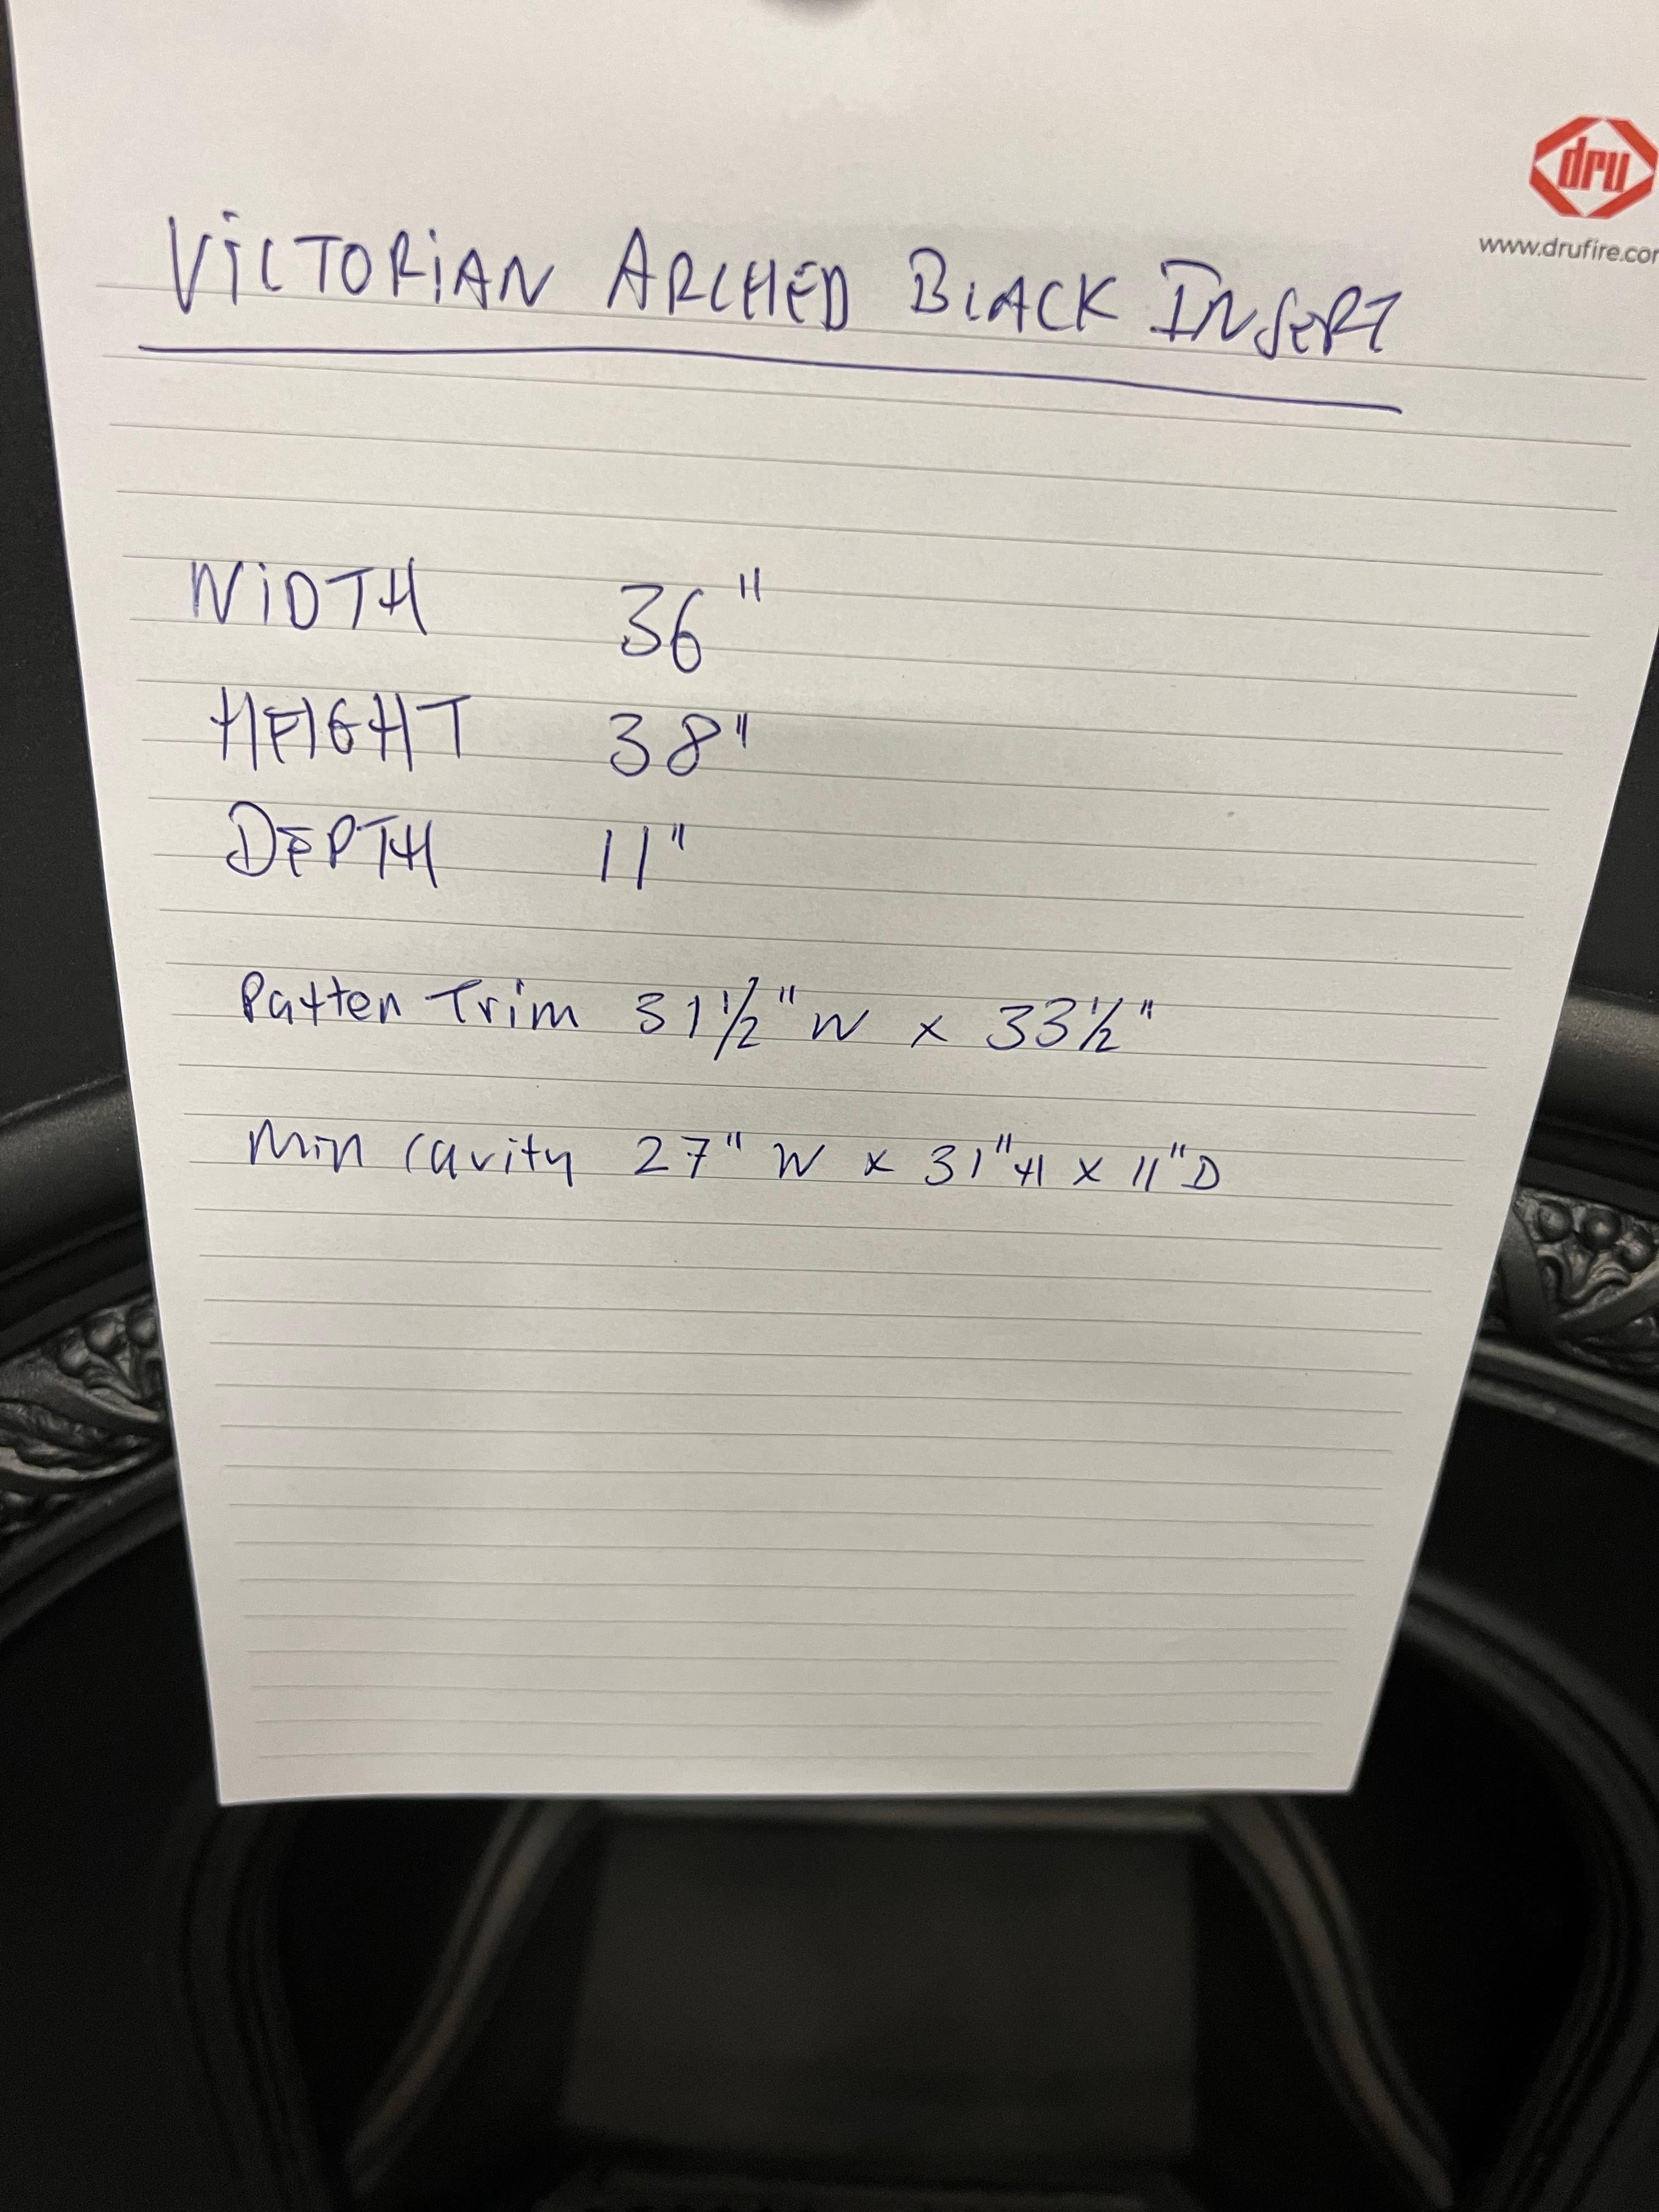 dru
www.drufire.com
VICTORIAN ARCHED BLACK INSERT
WIDTH 36"
HEIGHT 38"
DEPTH 11"
Patten Trim 31 1/2" W x 33 1/2"
Min cavity 27" W x 31" H x 11" D